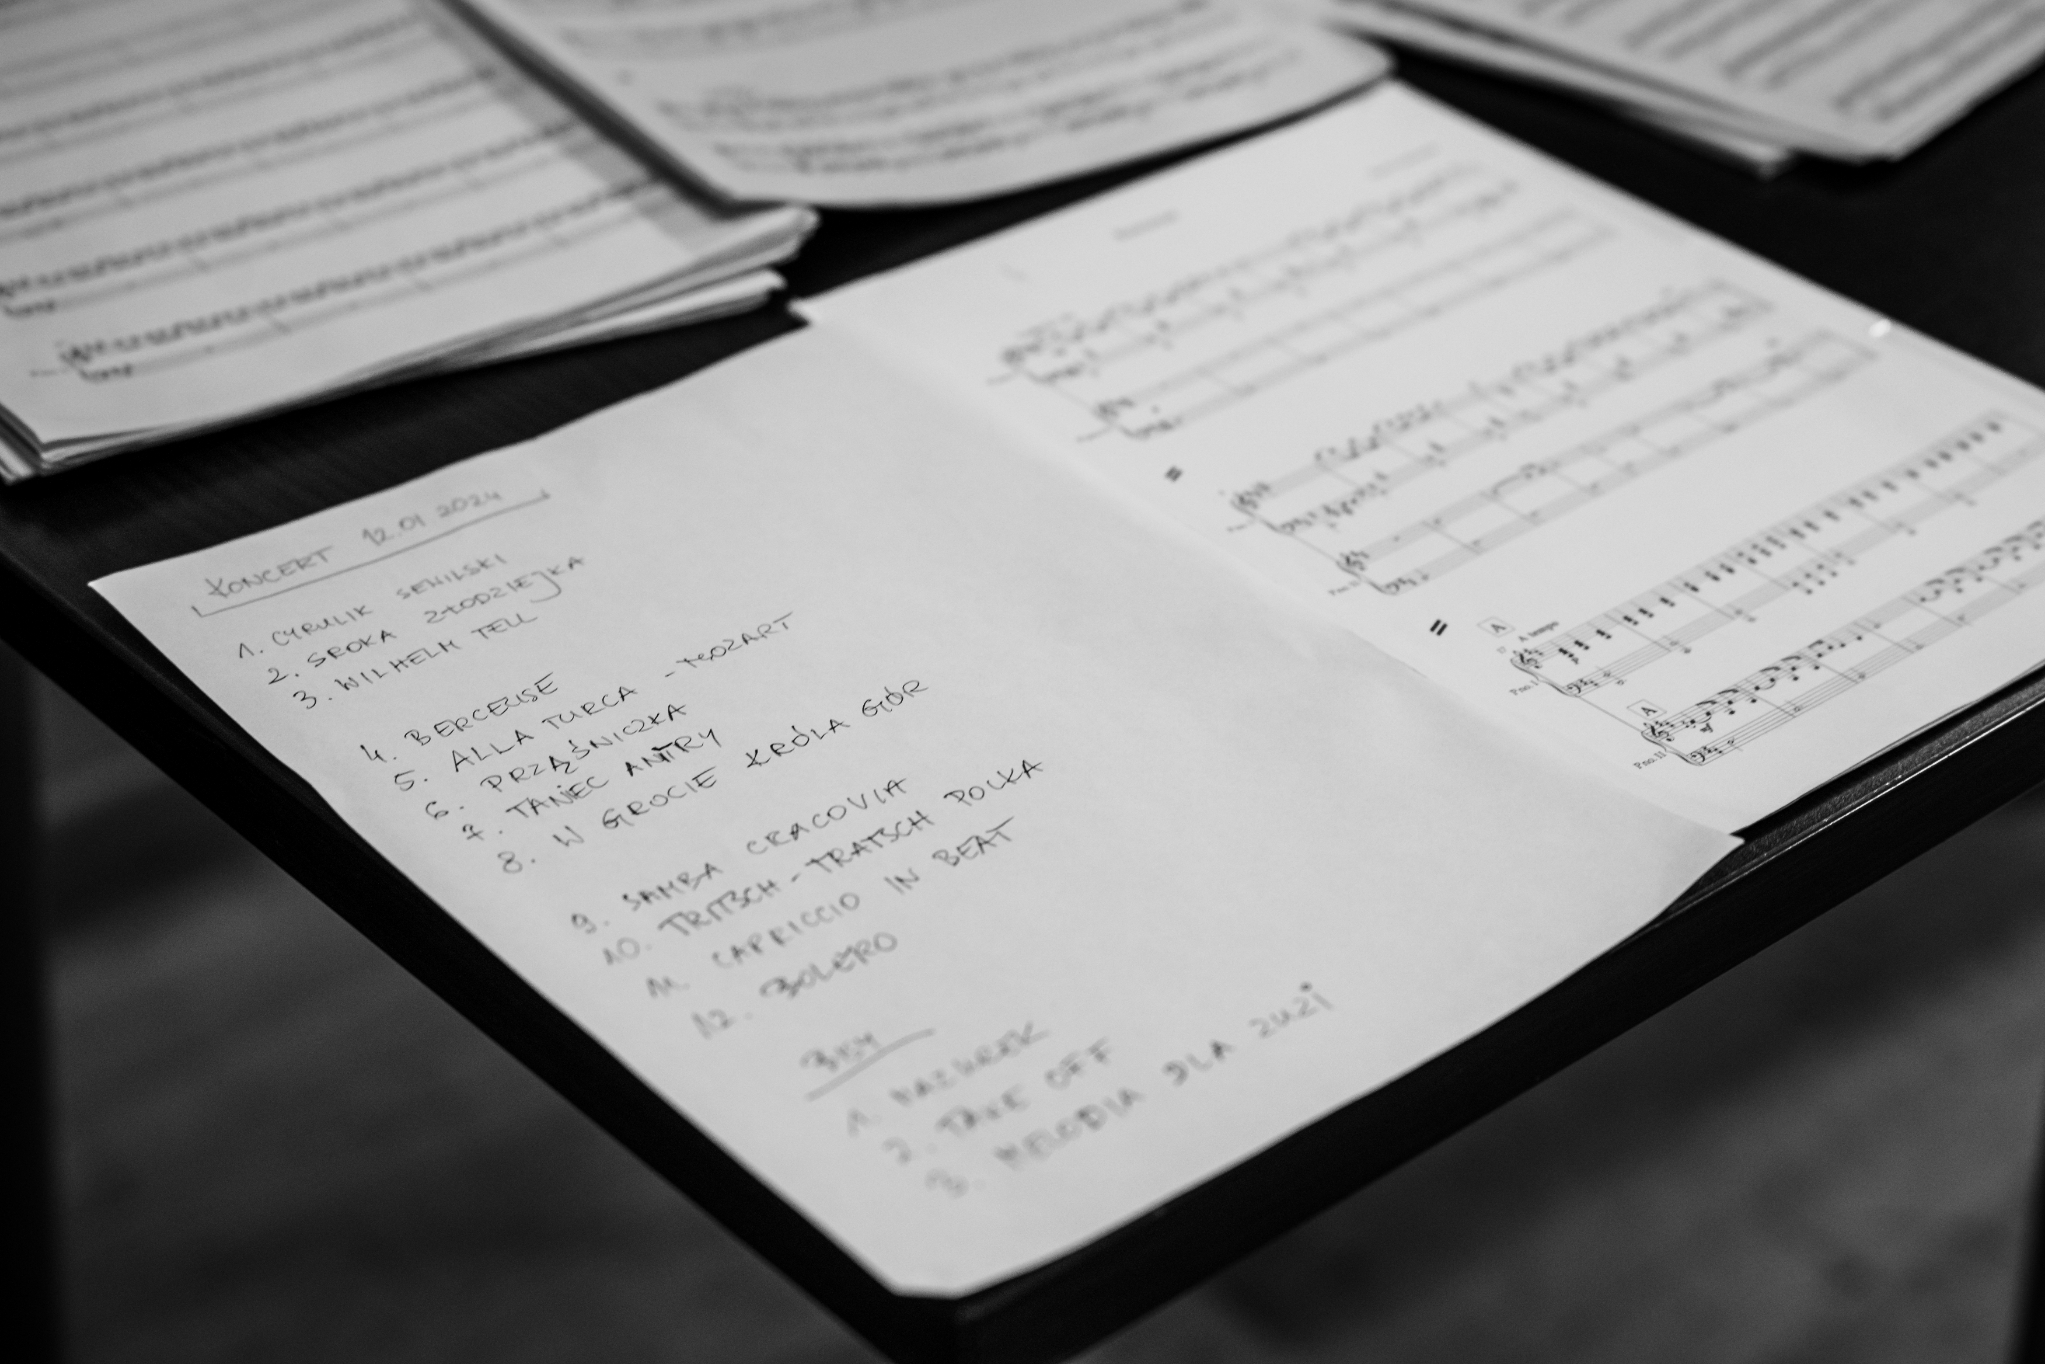 KONCERT 12.01 2024
1. CYRULIK SEWILSKI
2. SROKA ZŁODZIEJKA
3. WILHELM TELL
4. BERCEUSE
5. ALLA TURCA - MOZART
6. PRZĄŚNICZKA
7. TANIEC ANITRY
8. W GROCIE KRÓLA GÓR
9. SAMBA CRACOVIA
10. TRITSCH-TRATSCH POLKA
11. CAPRICCIO IN BEAT
12. BOLERO
BISY
1. MAZUREK
2. TAKE OFF
3. MELODIA DLA ZUZI
A
A tempo
Pno. I
A
Pno. II